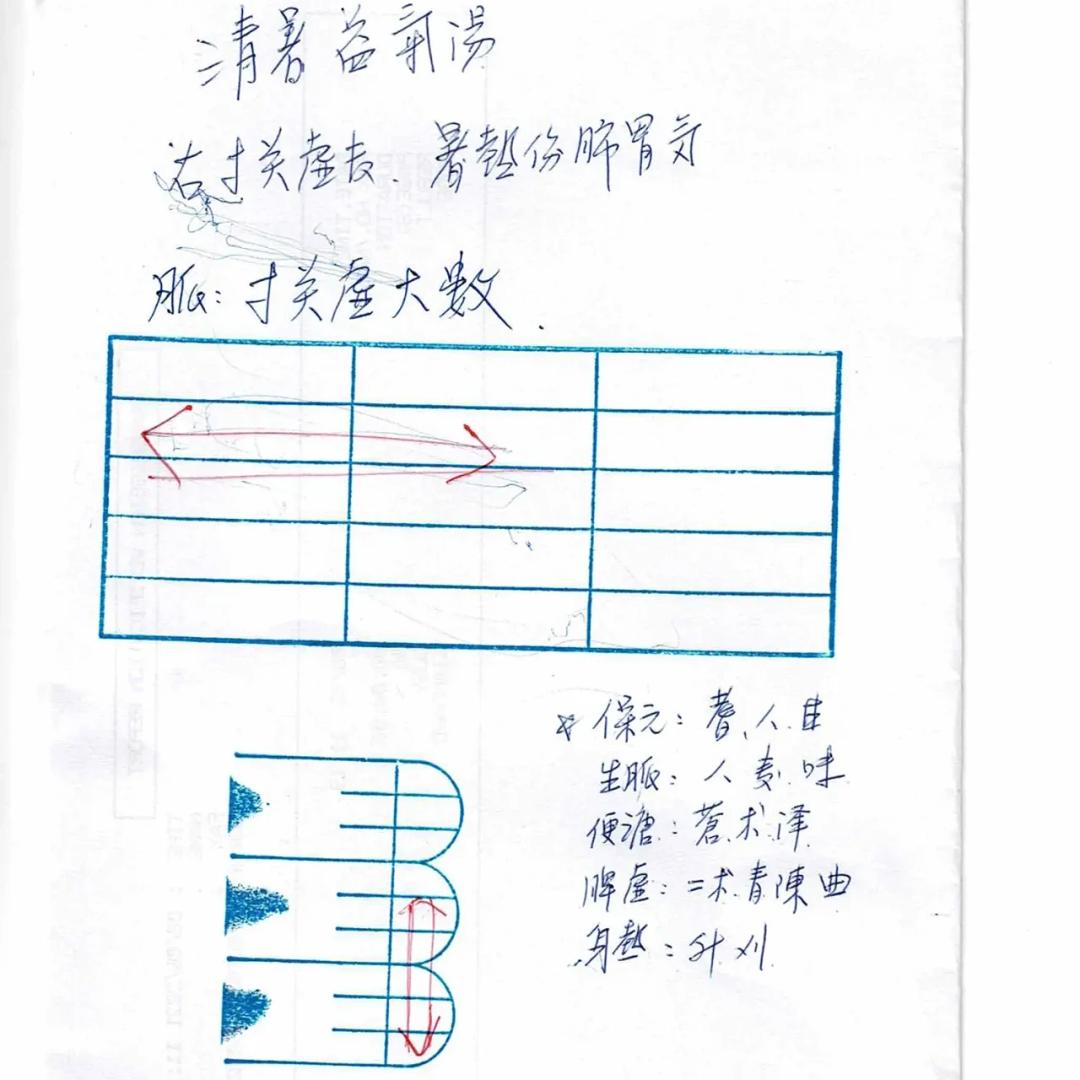 清暑益氣湯
右寸关虚大、暑热伤肺胃气
脈：寸关虚大数.
保元：蓍、人、甘
生脈：人、麦、味
便溏：蒼术、泽
脾虚：二术、青陳曲
身热：升刈